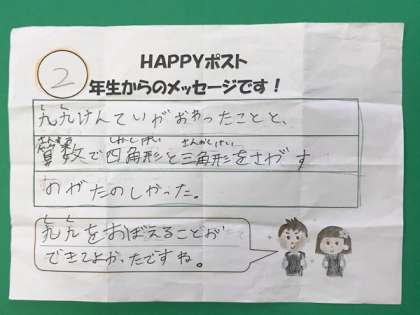 HAPPYポスト
2
年生からのメッセージです！
九九けんていがおわったことと、
算数で四角形と三角形をさがす
のがたのしかった。
九九をおぼえることが
できてよかったですね。